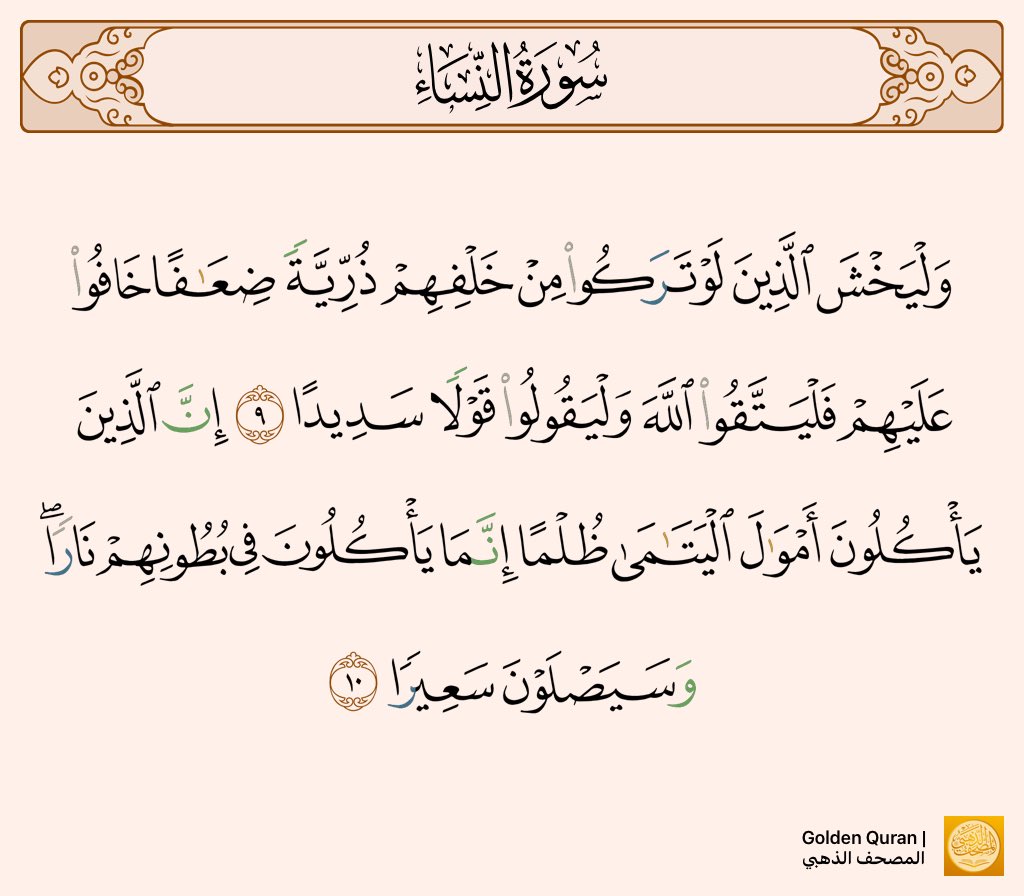 سُورَةُ النِّسَاءِ
وَلْيَخْشَ ٱلَّذِينَ لَوْ تَرَكُوا۟ مِنْ خَلْفِهِمْ ذُرِّيَّةً ضِعَـٰفًا خَافُوا۟
عَلَيْهِمْ فَلْيَتَّقُوا۟ ٱللَّهَ وَلْيَقُولُوا۟ قَوْلًا سَدِيدًا ٩ إِنَّ ٱلَّذِينَ
يَأْكُلُونَ أَمْوَٰلَ ٱلْيَتَـٰمَىٰ ظُلْمًا إِنَّمَا يَأْكُلُونَ فِى بُطُونِهِمْ نَارًا ۖ
وَسَيَصْلَوْنَ سَعِيرًا ١٠
Golden Quran |
المصحف الذهبي